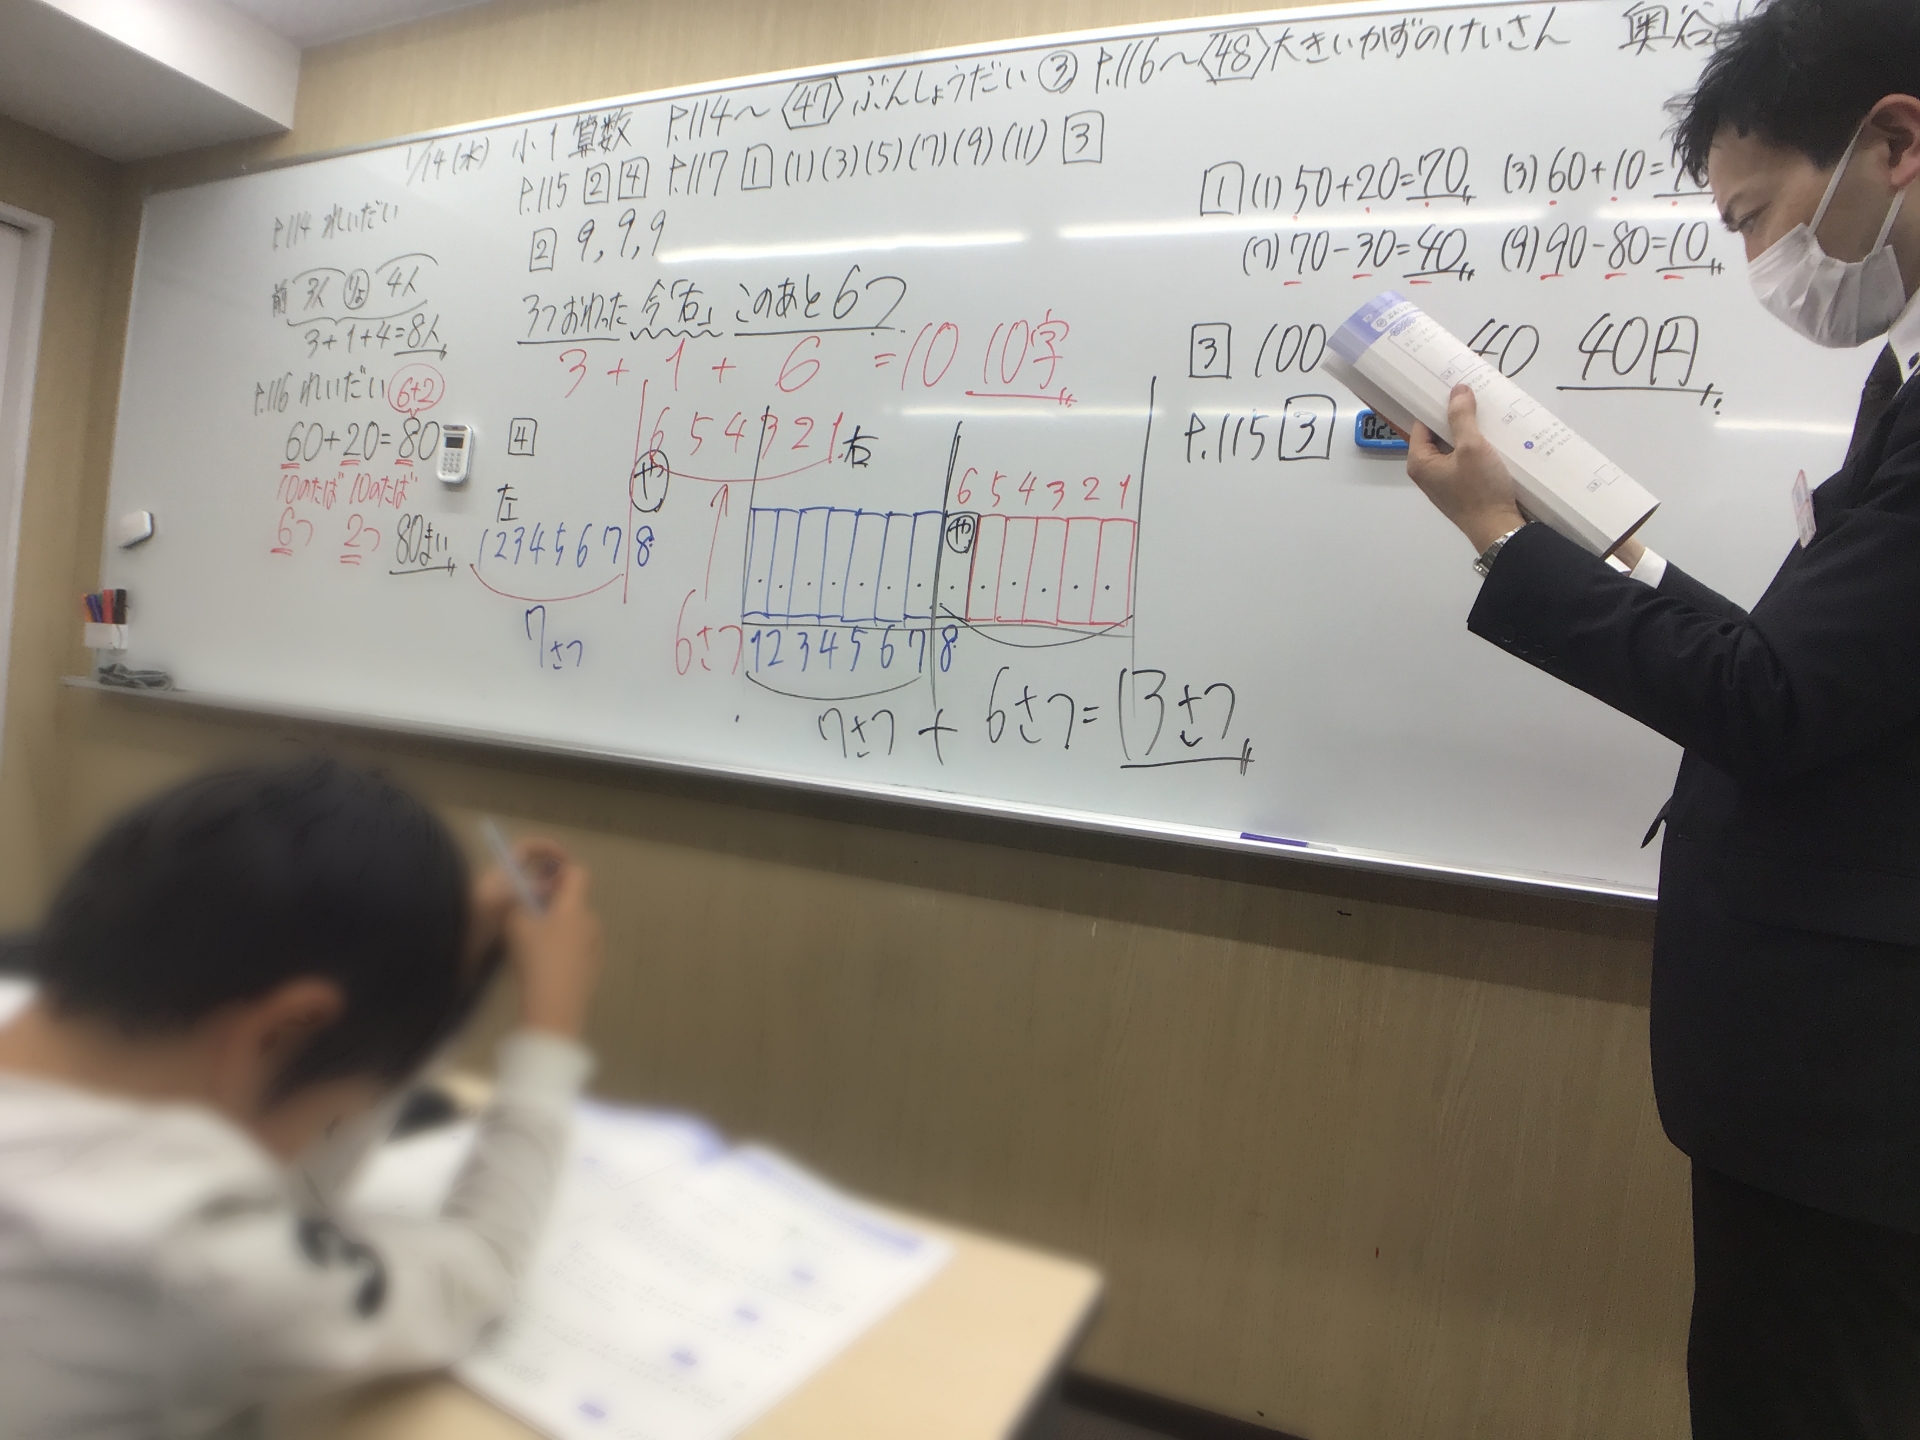 1/14(水) 小1算数 P.114～〈47〉ぶんしょうだい③ P.116～〈48〉大きいかずのけいさん 奥谷
P.115 2 4 P.117 1 (1)(3)(5)(7)(9)(11) 3
P.114 れいだい
前 3人 4人
3+1+4=8人
P.116 れいだい 6+2
60+20=80
10のたば 10のたば
6つ 2つ 80まい
2 9,9,9
3つおわった 今「右」 このあと6つ
3+1+6=10 10字
4
6 5 4 3 2 1 右
や
左
1 2 3 4 5 6 7 8
7さつ
6さつ
6 5 4 3 2 1
や
1 2 3 4 5 6 7 8
7さつ+6さつ=13さつ
1 (1) 50+20=70 (3) 60+10=70
(7) 70-30=40 (9) 90-80=10
3 100 40 40円
P.115 3